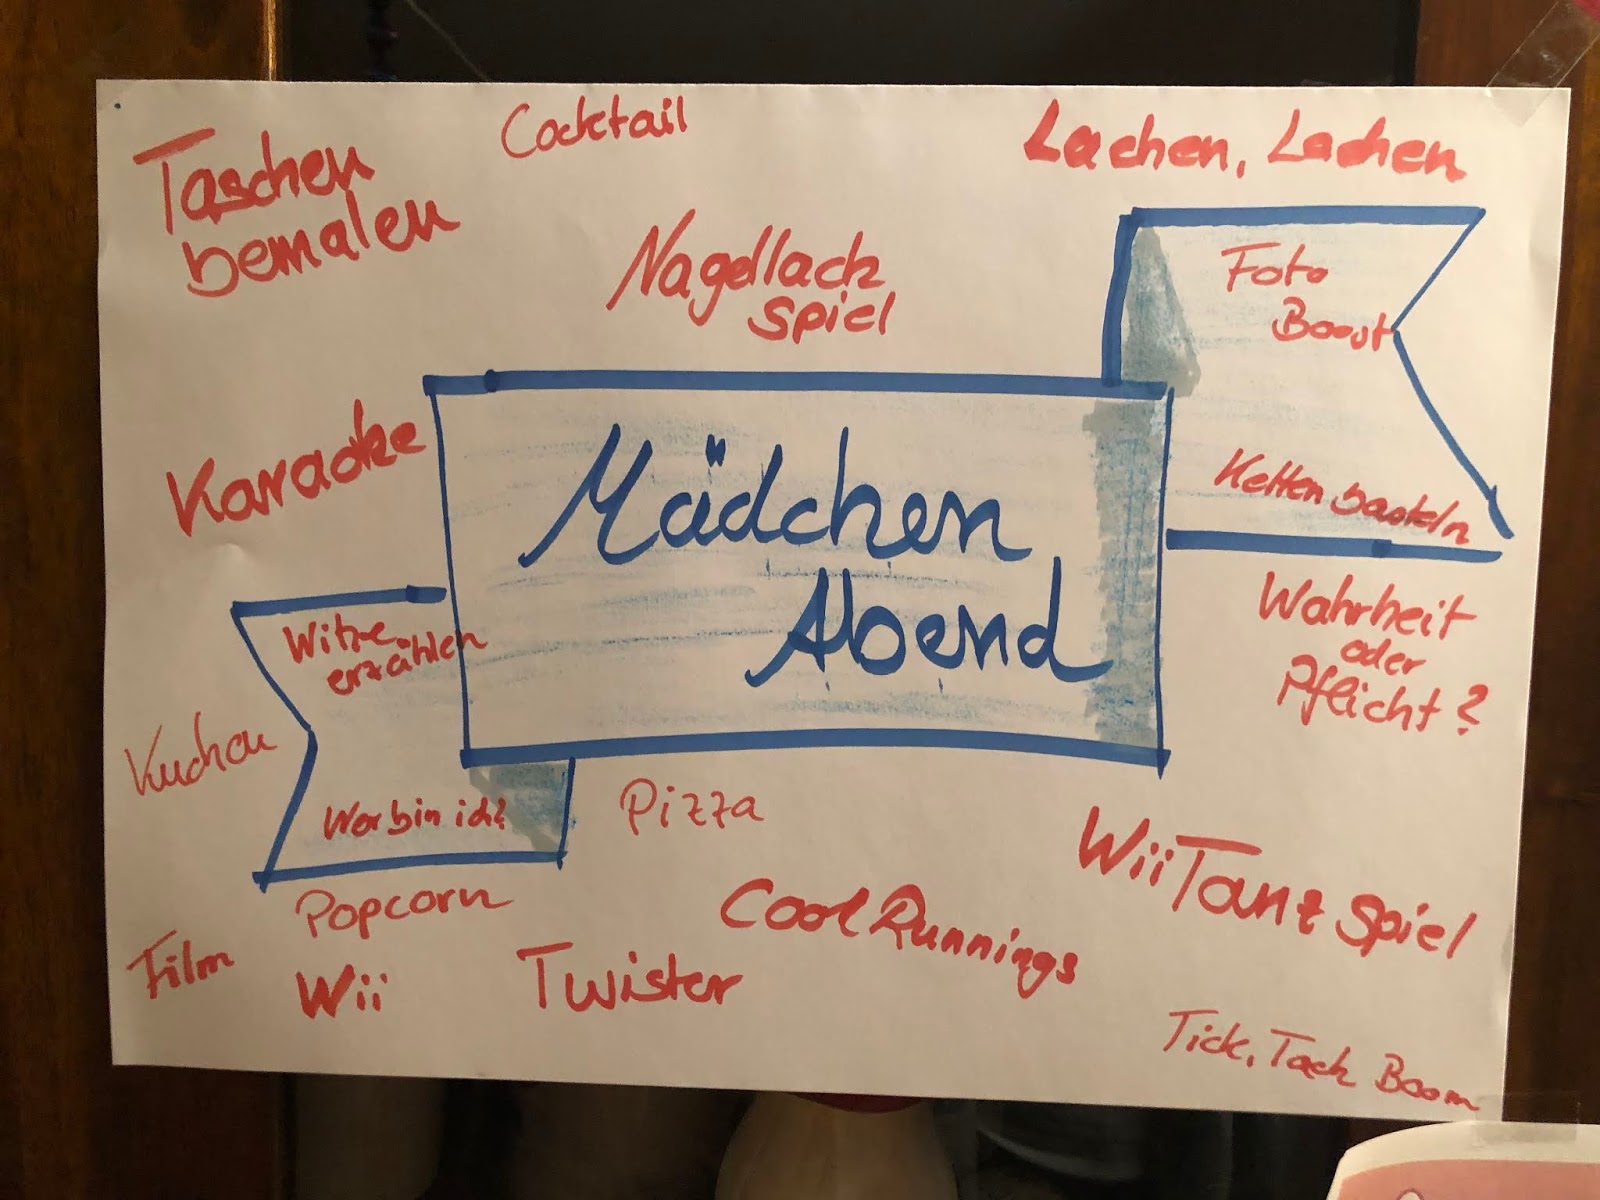 Cocktail
Lachen, Lachen
Taschen
bemalen
Nagellack
Spiel
Foto
Boout
Karaoke
Mädchen
Abend
Ketten basteln
Witze
erzählen
Wahrheit
oder
Pflicht?
Kuchen
Wer bin ich?
Pizza
Wii Tanz Spiel
Popcorn
Cool Runnings
Film
Wii
Twister
Tick, Tack Boom